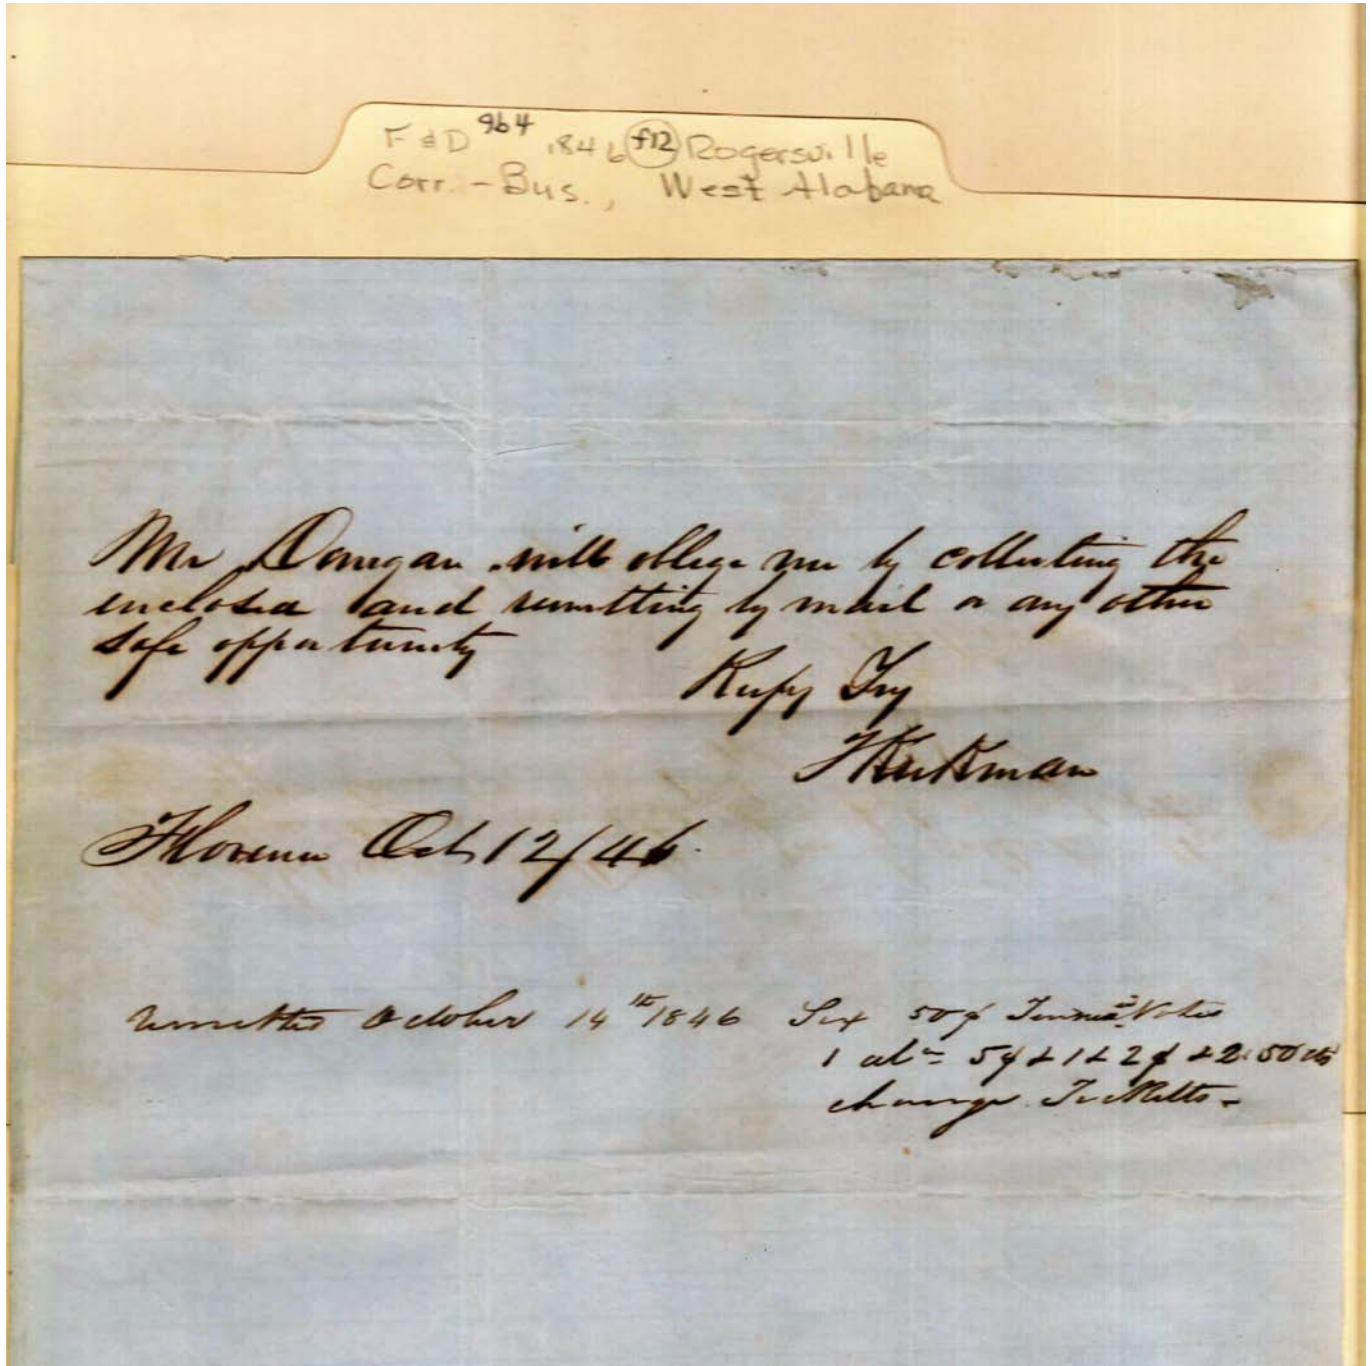 F & D 9b4 1846 f12 Rogersville
Corr. - Bus., West Alabama
Mr Donegan will oblege me by collecting the
enclosed and remitting by mail or any other
safe opportunity
Respy
Kirkman
Florence Oct 12/46.
Remitted October 14th 1846 Six 50$ Notes
1 5$ & 1 & 2$ & 2. 50 cts
change Ticketts -